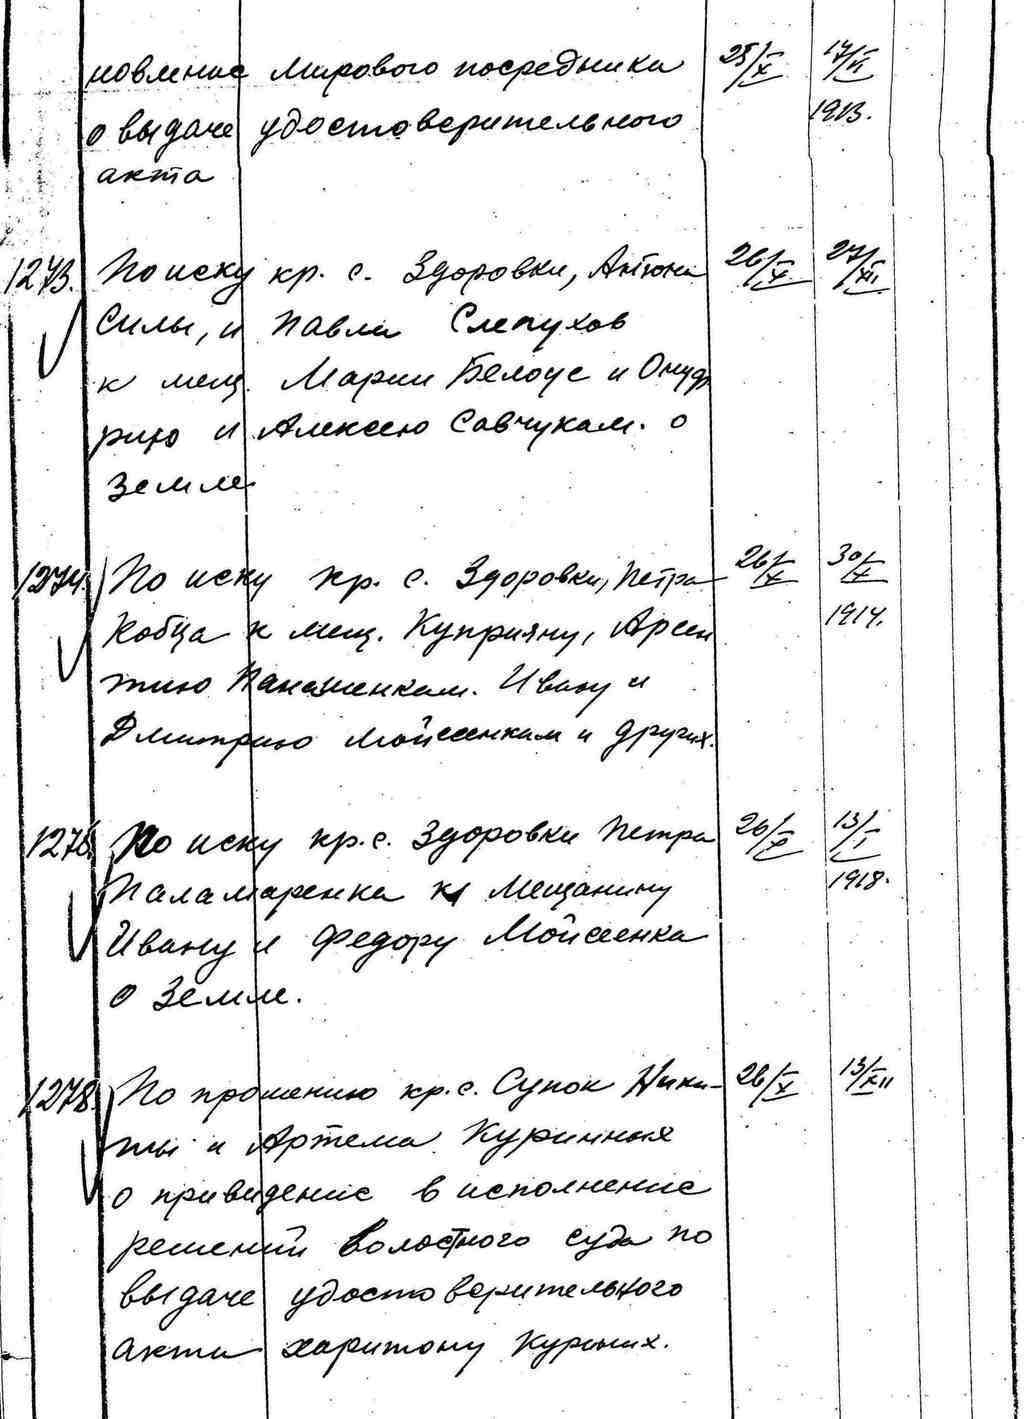 новление Мирового посредника 25/X 17/VI
о выдаче удостоверительного 1913.
акта
1273. По иску кр. с. Здоровки, Антона 26/X 27/XII.
Силы, и Павла Слепухов
к мещ. Марии Белоус и Онуф
рию и Алексею Савчукам. о
земле
1274. По иску кр. с. Здоровки, Петра 26/X 30/X
Кобца к мещ. Куприяну, Арсен 1914.
тию Панашенкам. Ивану и
Дмитрию Мойсеенкам и других.
1276. По иску кр. с. Здоровки Петра 26/X 13/I
Паламаренка к Мещанину 1918.
Ивану и Федору Мойсеенка
о Земле.
1278. По прошению кр. с. Супок Ники- 26/X 13/XII
ты и Артема Куринных
о приведение в исполнение
решений Волостного суда по
выдаче удостоверительного
акта Харитону Куриных.